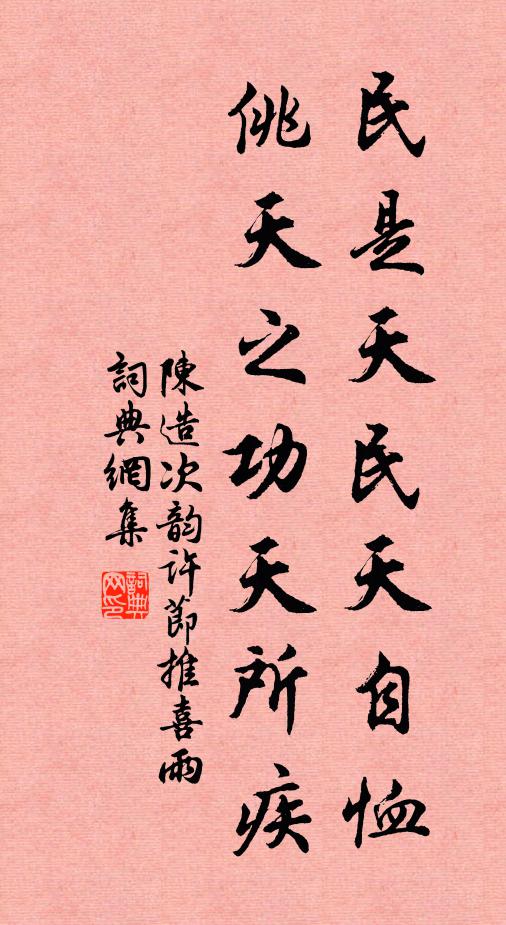 民是天民天自恤
佻天之功天所疾
陳造次韵许節推喜雨
詞典網集
詞典网印